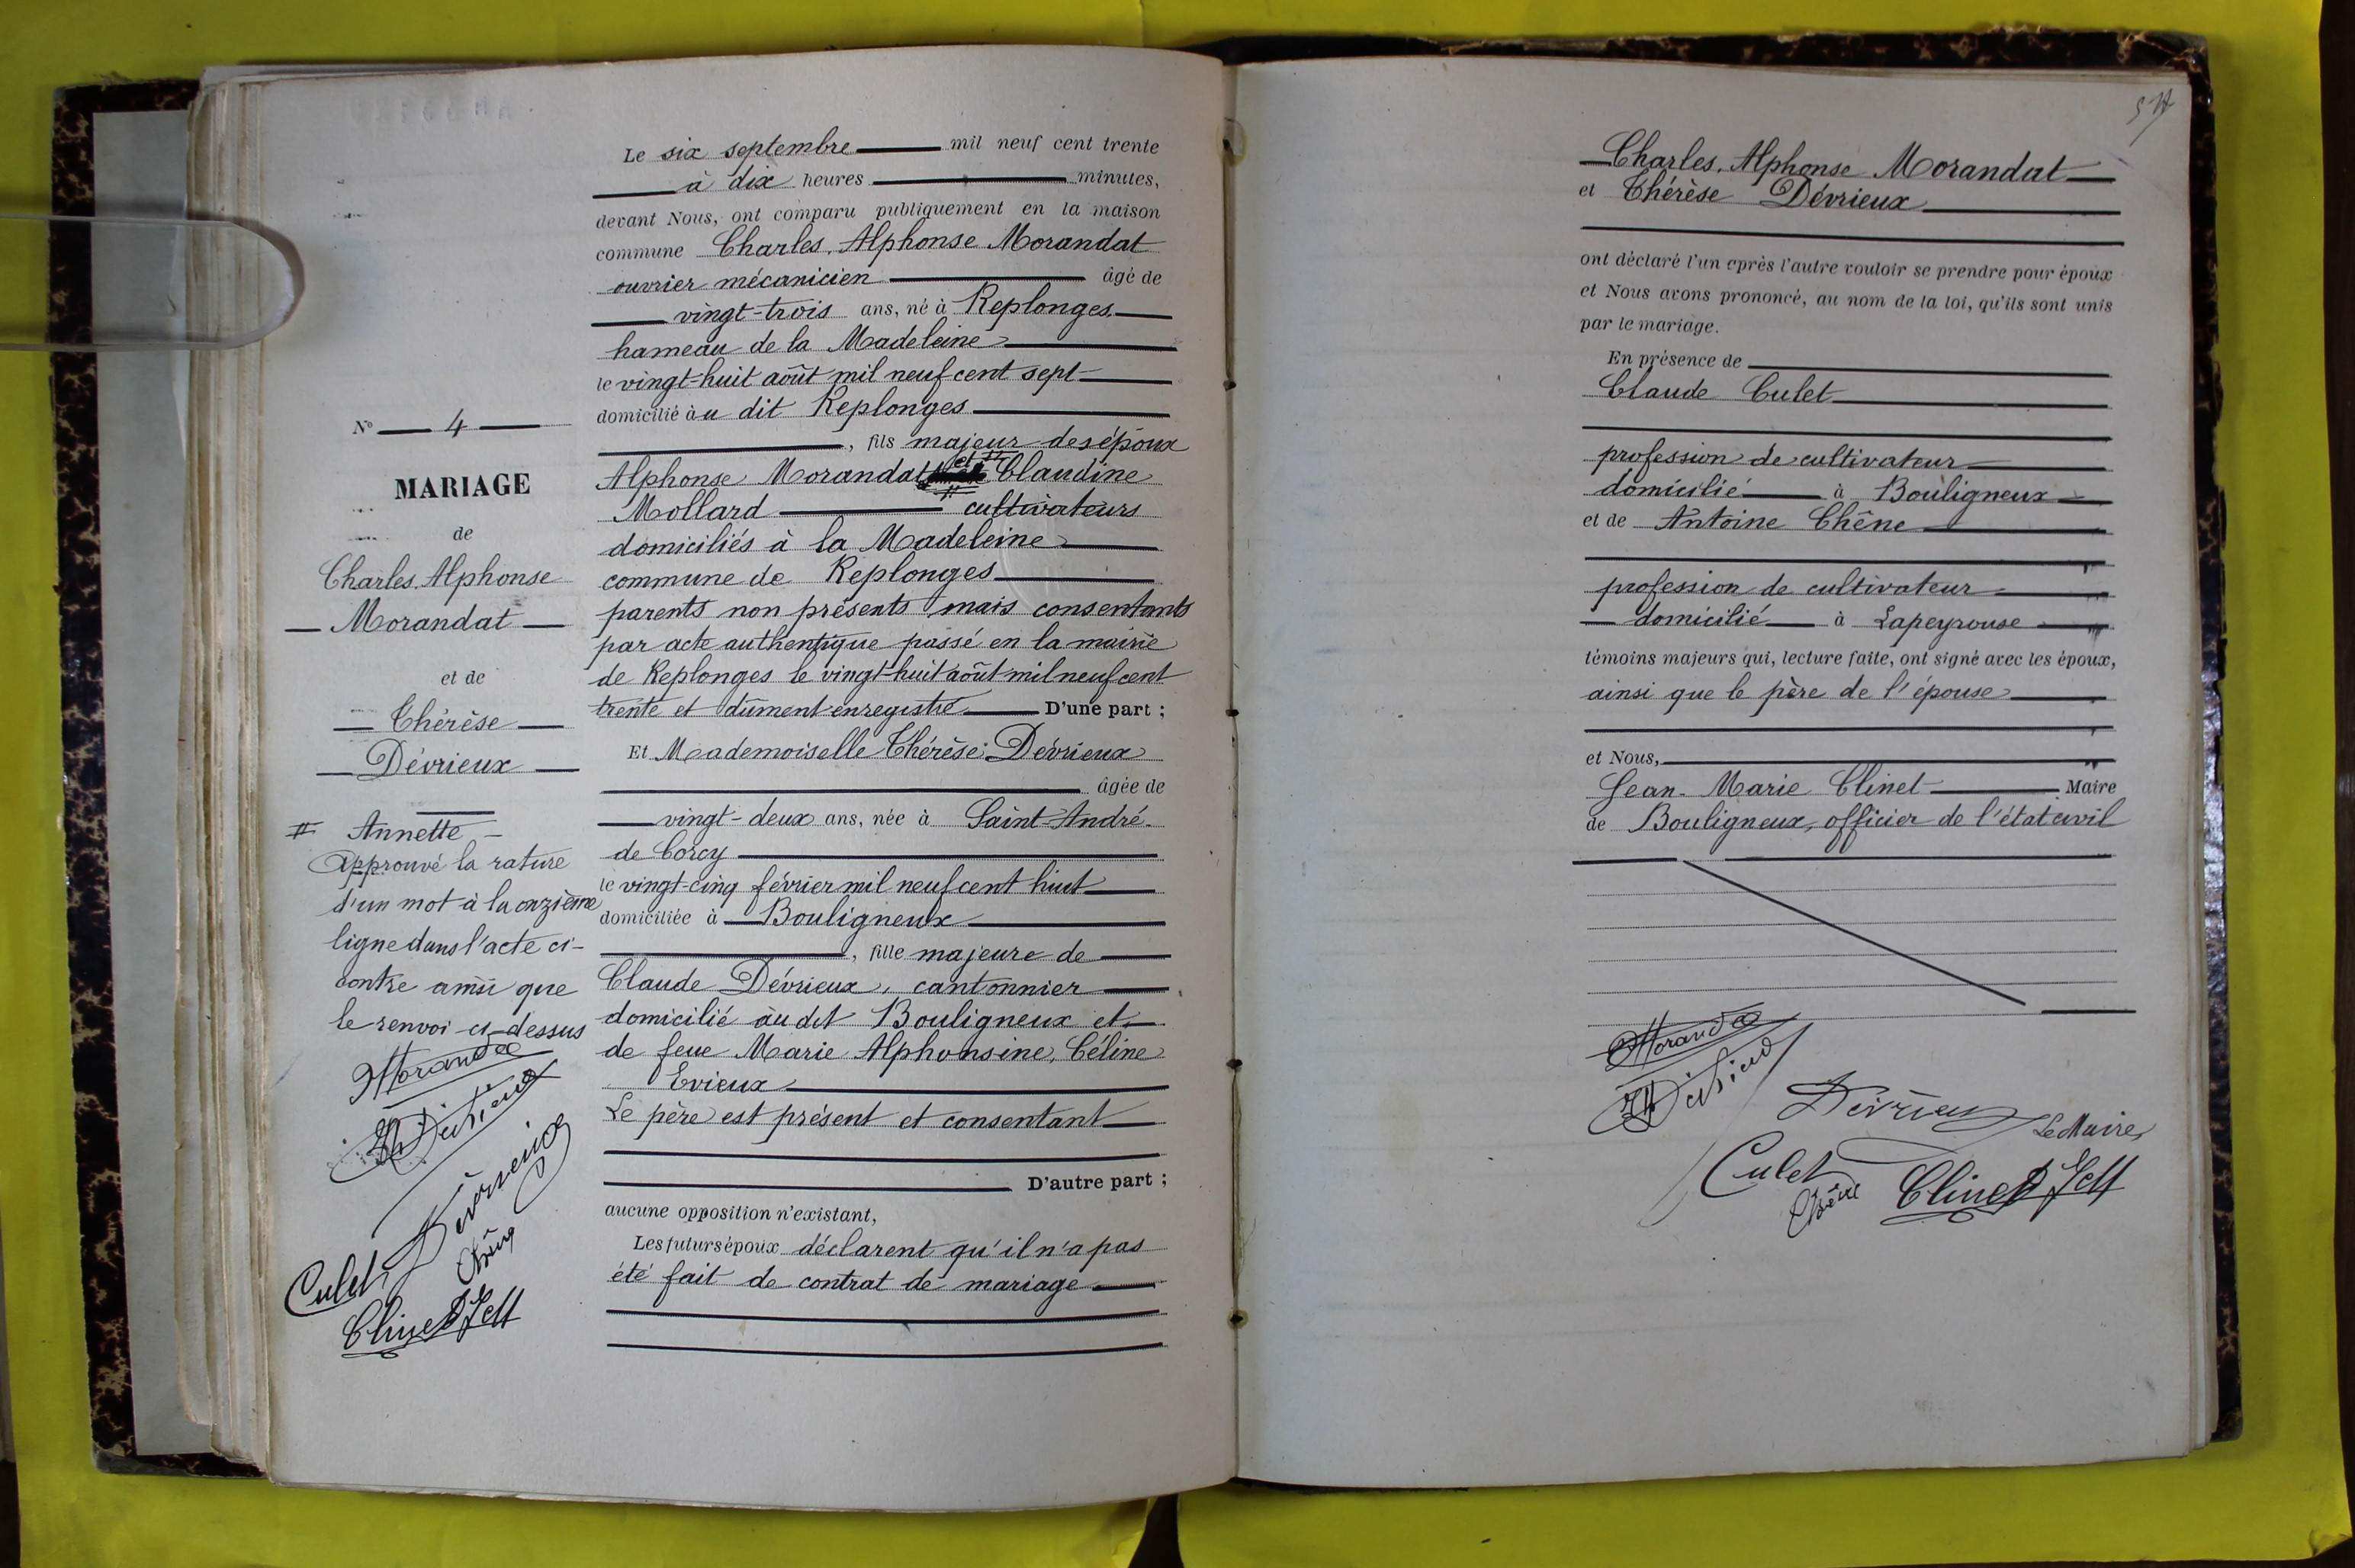 N° 4
MARIAGE
de
Charles, Alphonse
Morandat
et de
Thérèse
Dévrieux
# Annette
Approuvé la rature
d'un mot à la onzième
ligne dans l'acte ci-
contre ainsi que
le renvoi ci-dessus
Culet
Clinet
Le six septembre mil neuf cent trente
à dix heures minutes,
devant Nous, ont comparu publiquement en la maison
commune Charles, Alphonse Morandat
ouvrier mécanicien âgé de
vingt-trois ans, né à Replonges,
hameau de la Madeleine
le vingt-huit août mil neuf cent sept
domicilié à u dit Replonges
, fils majeur des époux
Alphonse Morandat et # Claudine
Mollard cultivateurs
domiciliés à la Madeleine
commune de Replonges
parents non présents mais consentants
par acte authentique passé en la mairie
de Replonges le vingt-huit août mil neuf cent
trente et dûment enregistré D'une part ;
Et Mademoiselle Thérèse Dévrieux
âgée de
vingt-deux ans, née à Saint-André-
de Corcy
le vingt-cinq février mil neuf cent huit
domiciliée à Bouligneux
, fille majeure de
Claude Dévrieux, cantonnier
domicilié au dit Bouligneux et
de feue Marie Alphonsine, Céline
Evieux
Le père est présent et consentant
D'autre part ;
aucune opposition n'existant,
Les futurs époux déclarent qu'il n'a pas
été fait de contrat de mariage
Charles, Alphonse Morandat
et Thérèse Dévrieux
ont déclaré l'un après l'autre vouloir se prendre pour époux
et Nous avons prononcé, au nom de la loi, qu'ils sont unis
par le mariage.
En présence de
Claude Culet
profession de cultivateur
domicilié à Bouligneux
et de Antoine Chêne
profession de cultivateur
domicilié à Lapeyrouse
témoins majeurs qui, lecture faite, ont signé avec les époux,
ainsi que le père de l'épouse
et Nous,
Jean-Marie Clinet Maire
de Bouligneux, officier de l'état civil
Dévrieux
Le Maire,
Culet
Chêne
Clinet